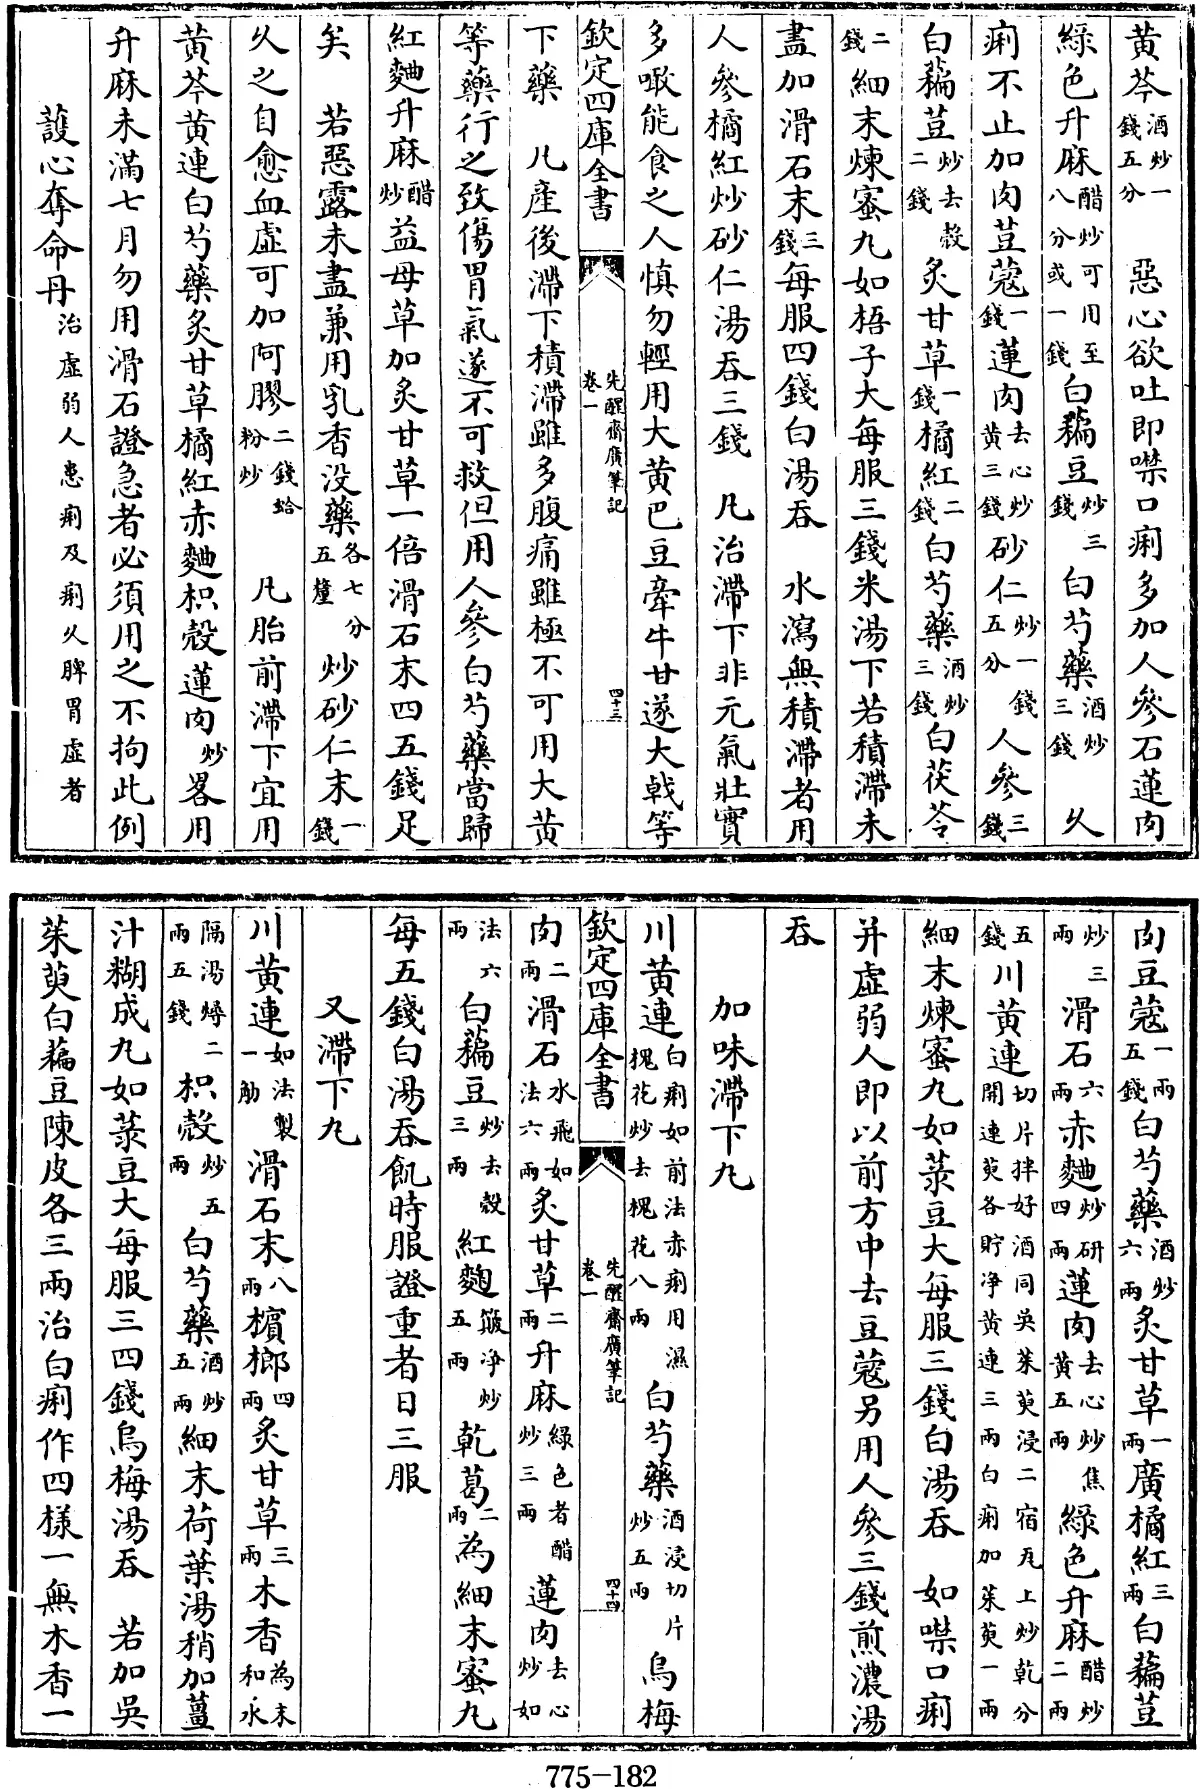 黄芩酒炒一錢五分　惡心欲吐即噤口痢多加人參石蓮肉
綠色升麻醋炒可用至八分或一錢白藊豆炒三錢白芍藥酒炒三錢　久
痢不止加肉荳蔻一錢蓮肉去心炒黄三錢砂仁炒一錢五分人參三錢
白藊荳炒去殼二錢炙甘草一錢橘紅二錢白芍藥酒炒三錢白茯苓
二錢細末煉蜜丸如梧子大每服三錢米湯下若積滯未
盡加滑石末三錢每服四錢白湯吞　水瀉無積滯者用
人參橘紅炒砂仁湯吞三錢　凡治滯下非元氣壯實
多噉能食之人慎勿輕用大黄巴豆牽牛甘遂大戟等
欽定四庫全書　先醒齋廣筆記卷一　四十三
下藥　凡產後滯下積滯雖多腹痛雖極不可用大黄
等藥行之致傷胃氣遂不可救但用人參白芍藥當歸
紅麯升麻醋炒益母草加炙甘草一倍滑石末四五錢足
矣　若惡露未盡兼用乳香没藥各七分五釐炒砂仁末一錢
久之自愈血虛可加阿膠二錢蛤粉炒　凡胎前滯下宜用
黄芩黄連白芍藥炙甘草橘紅赤麯枳殼蓮肉炒畧用
升麻未滿七月勿用滑石證急者必須用之不拘此例
護心奪命丹治虛弱人患痢及痢久脾胃虛者
肉豆蔻一兩五錢白芍藥酒炒六兩炙甘草一兩廣橘紅三兩白藊荳
炒三兩滑石六兩赤麯炒研四兩蓮肉去心炒焦黄五兩綠色升麻醋炒二兩
五錢川黄連切片拌好酒同吳茱萸浸二宿瓦上炒乾分開連萸各貯净黄連三兩白痢加茱萸一兩
細末煉蜜丸如菉豆大每服三錢白湯吞　如噤口痢
并虛弱人即以前方中去豆蔻另用人參三錢煎濃湯
吞
加味滯下丸
川黄連白痢如前法赤痢用濕槐花炒去槐花八兩白芍藥酒浸切片炒五兩烏梅
欽定四庫全書　先醒齋廣筆記卷一　四十四
肉二兩滑石水飛如法六兩炙甘草二兩升麻綠色者醋炒三兩蓮肉去心炒如
法六兩白藊豆炒去殼三兩紅麴簸净炒五兩乾葛二兩為細末蜜丸
每五錢白湯吞飢時服證重者日三服
又滯下丸
川黄連如法製一觔滑石末八兩檳榔四兩炙甘草三兩木香為末和水
隔湯燖二兩五錢枳殼炒五兩白芍藥酒炒五兩細末荷葉湯稍加薑
汁糊成丸如菉豆大每服三四錢烏梅湯吞　若加吳
茱萸白藊豆陳皮各三兩治白痢作四樣一無木香一
775-182